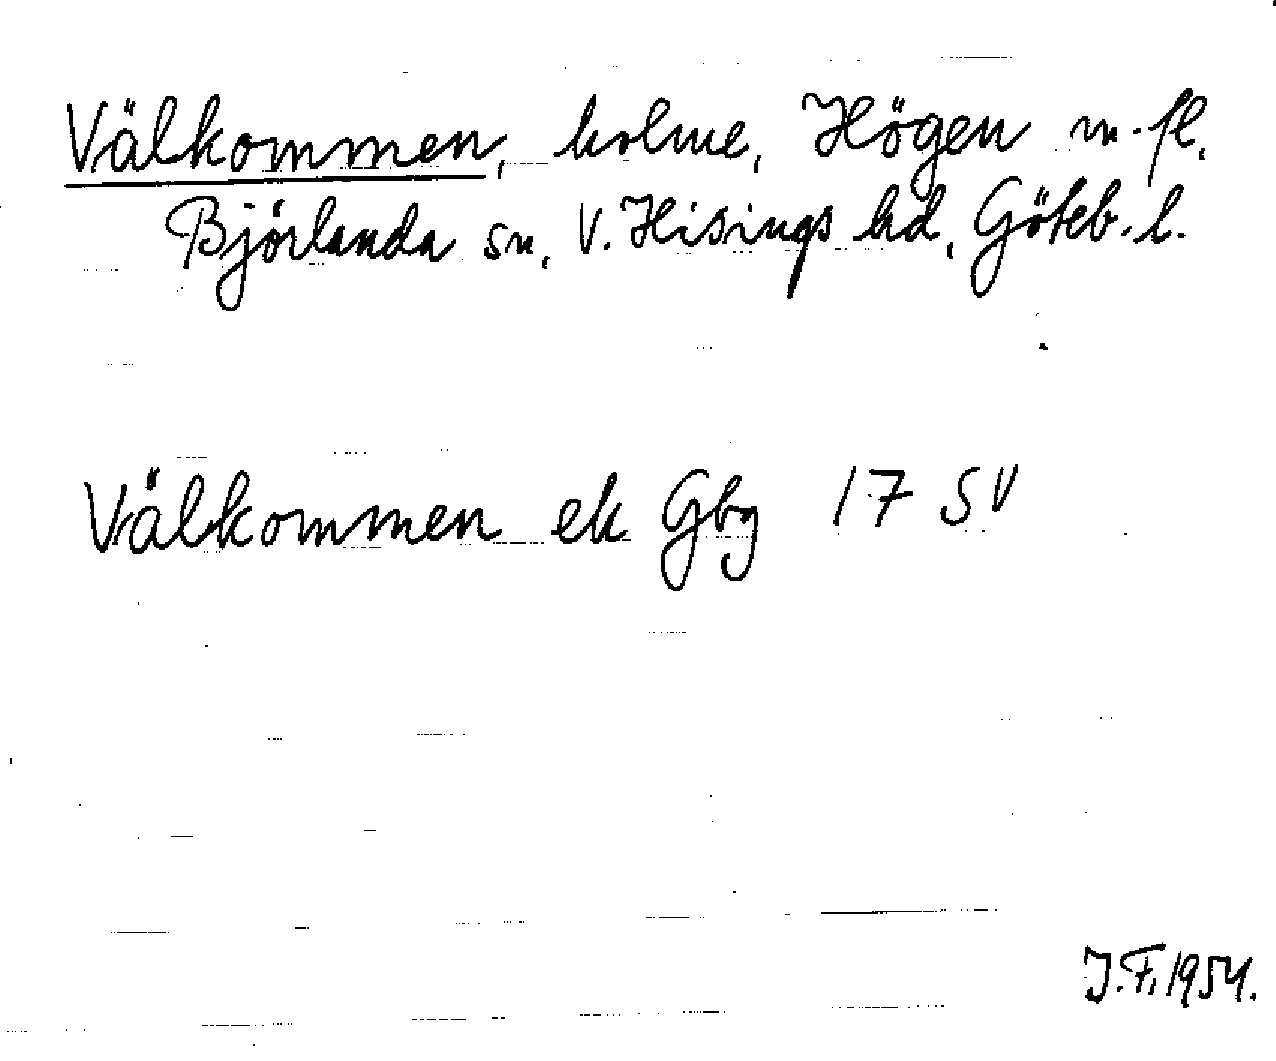 Välkommen, holme, Högen m.fl.
Björlanda sn, V. Hisings hd, Göteb. l.
Välkommen ek Gbg 17 SV
J.F. 1954.